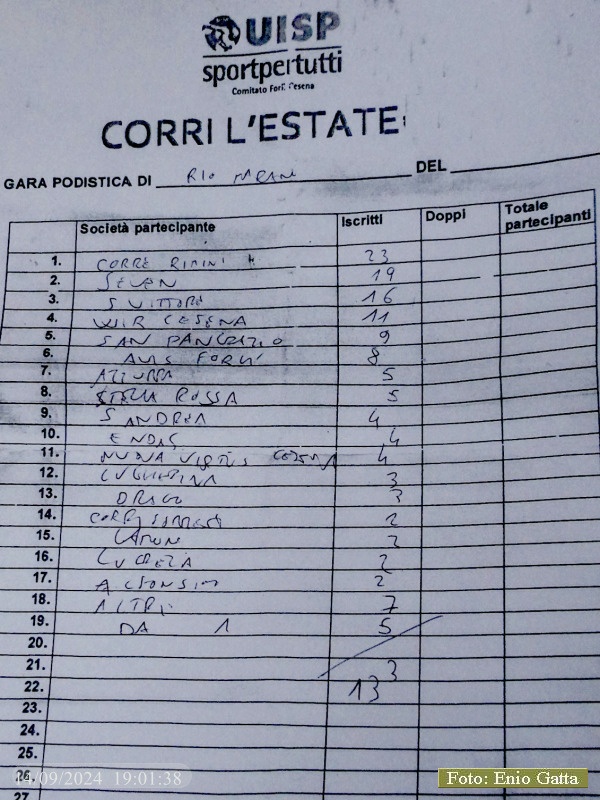 UISP
sportpertutti
Comitato Forlì Cesena
CORRI L'ESTATE
GARA PODISTICA DI RIO MARAN DEL
Società partecipante Iscritti Doppi Totale partecipanti
1. CORRE RIMINI 23
2. SEVEN 19
3. S VITTORE 16
4. WIR CESENA 11
5. SAN PANCRAZIO 9
6. AVIS FORLI' 8
7. AZZURRA 5
8. STELLA ROSSA 5
9. S ANDREA 4
10. ENDAS 4
11. NUOVA VIRTUS CESENA 4
12. LUGHESINA 3
13. DRAGO 3
14. 2
15. 2
16. LUCREZIA 2
17. 2
18. ALTRI 7
19. DA 1 5
20.
21. 3
22. 13
23.
24.
25.
26.
27
14/09/2024 19:01:38
Foto: Enio Gatta